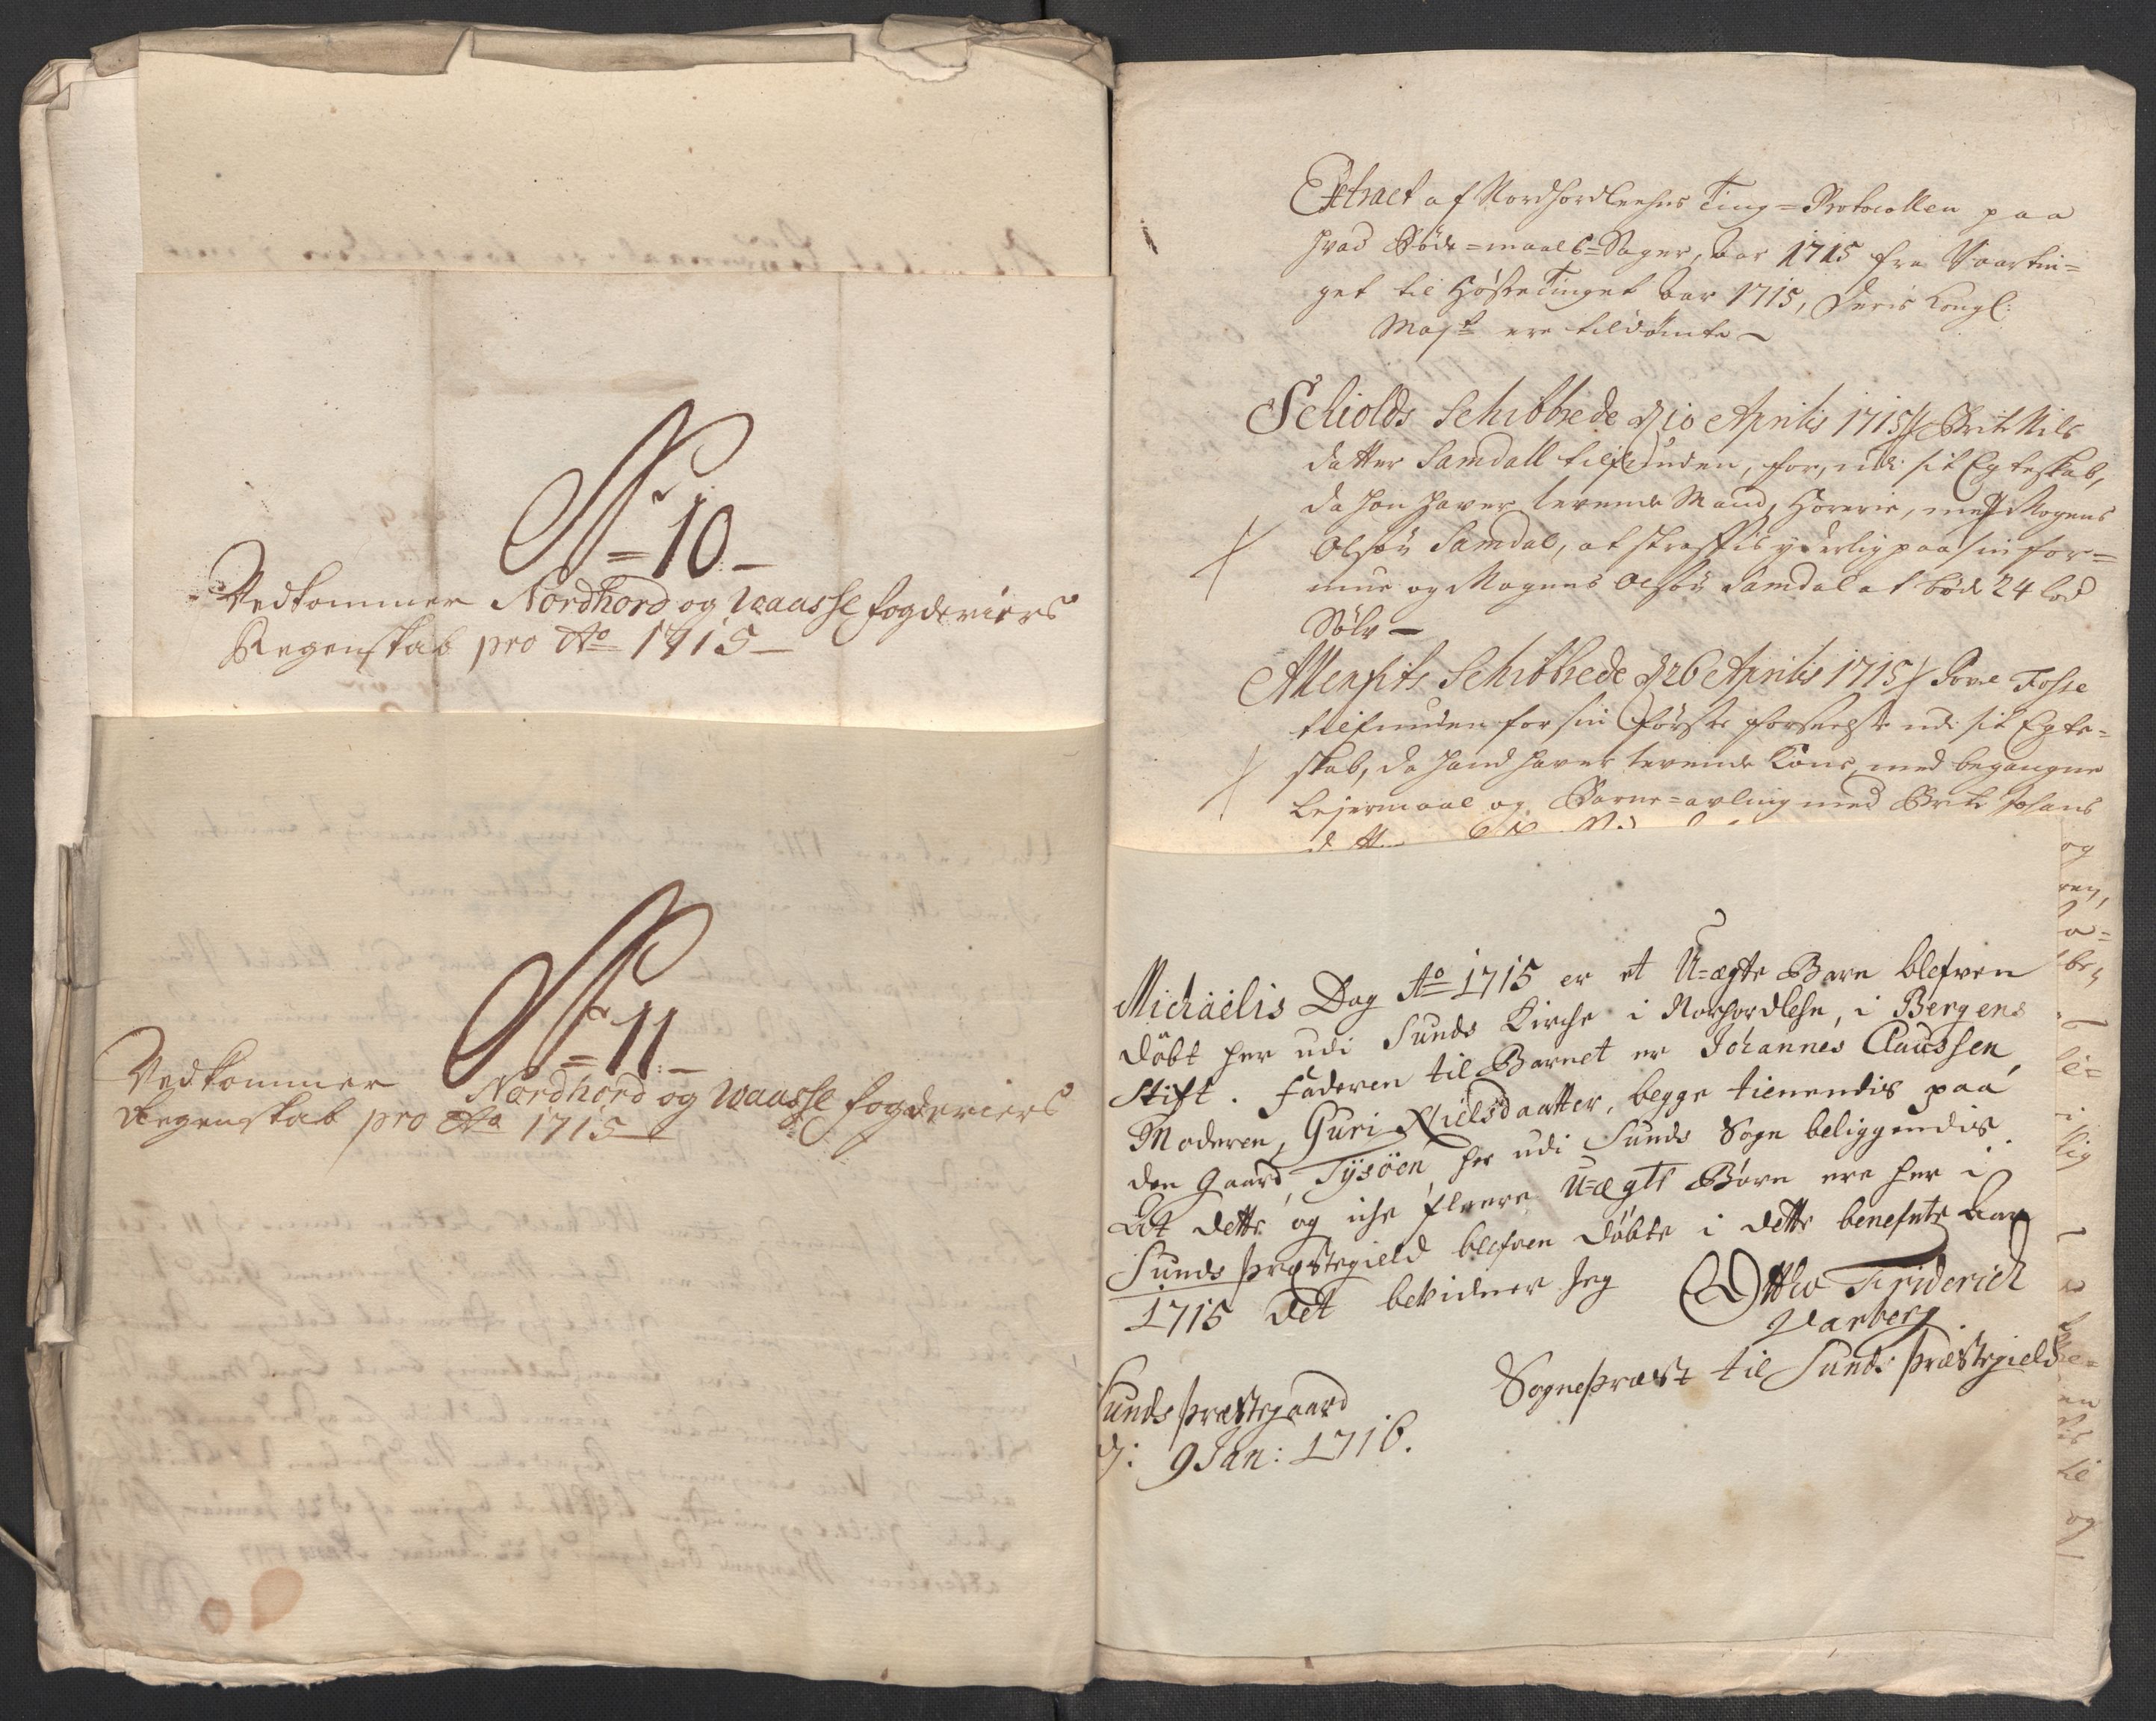 No 10
Vedkommer Nordhord og Waasse fogderiers
Regenskab pro Ao 1715
No 11
Vedkommer Nordhord og Waasse fogderiers
Regenskab pro Ao 1715
Extract af Nordhordlehns Ting=Protocollen paa
hvad Bøde=maals=Sager, aar 1715 fra Vaartin=
get til Høstetinget aar 1715, Deris Kongl:
Mayt ere tildömte
Schiolds Schibbrede d 10 Aprilis 1715 // Brite Nils
datter Samdall tilfunden, for, udi sit Egteskab,
da hon haver levende Mand, Horerie, med Mogens
Olsøn Samdal, at straffis yderlig paa sin for=
mue og Mogens Olsøn Samdal at bøde 24 lod
Sølv
Allenfits Schibbrede d 26 Aprilis 1715 / Fosse
tilfunden for sin første forseelse udi sit Egte=
skab, da hand haver levende Kone, med begangne
Lejermaal og Barne=avling med Brite Johans
Michaëlis Dag Ao 1715 er et U=ægte Barn blefven
döbt her udi Sunds Kirche i Norhordlehn, i Bergens
Stift. Faderen til Barnet er Johannes Claussen,
Moderen, Guri Nielsdaatter, begge tienendis paa
den Gaard Tÿsöen her udi Sunds Sogn beliggendis.
At dette og iche fleere U=ægte Börn ere her i
Sunds præstegield blefven döbte i dette benefnte Aar
1715 det bevidner Jeg Ottho Friderich
Warberg
Sognepræst til Sunds præstegield
Sunds præstegaard
d: 9 Jan: 1716.
og
til
og